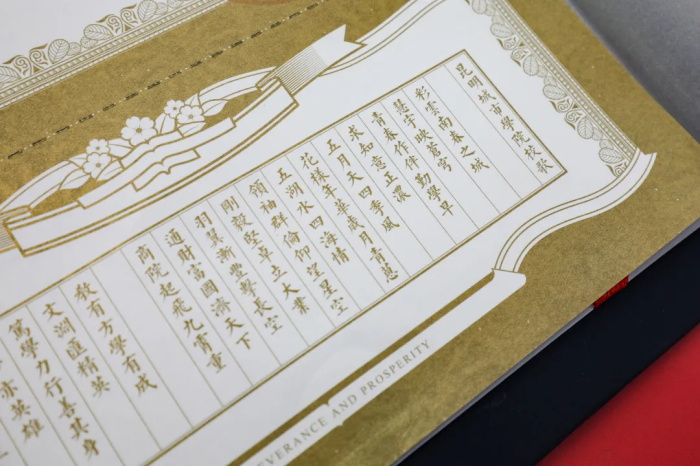 昆明城市學院校歌
彩雲南春之城
慧宇映蒼穹
青春作伴勤學早
求知意正濃
五月天四季風
花樣年華歲月青蔥
五湖水四海情
領袖群倫仰望星空
剛毅堅卓立大業
羽翼漸豐擊長空
通財富國濟天下
商院起飛九霄重
敬有方學有成
文淵匯精英
篤學力行善其身
赤英雄
AND PROSPERITY